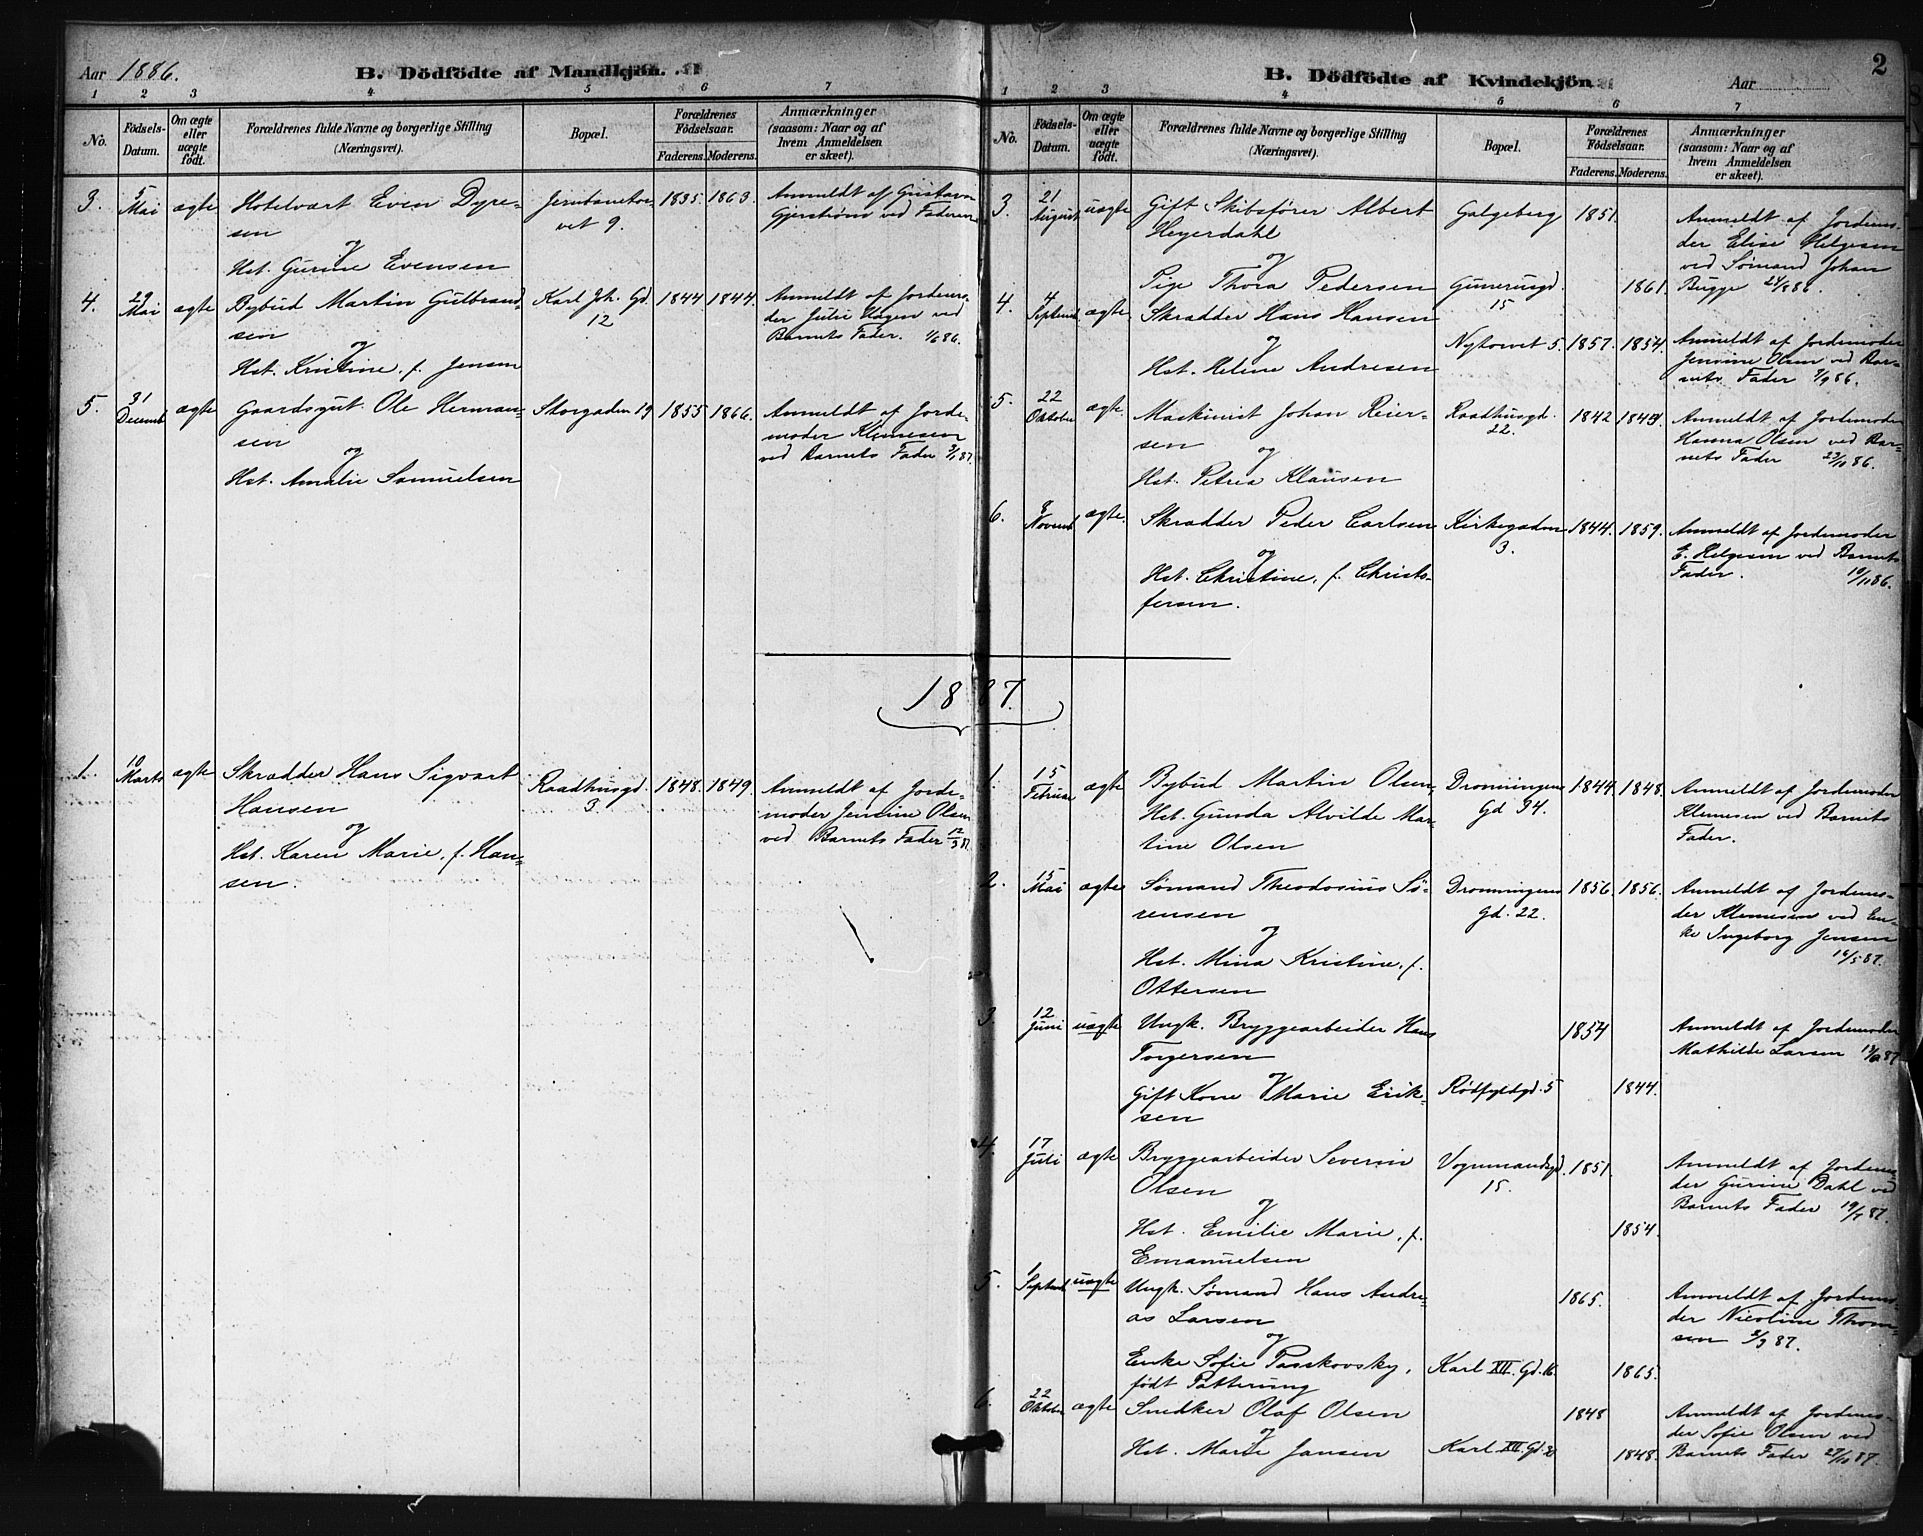 Aar 1886.
B. Dödfödte af Mandkjön.
1 2 3 4 5 6 7
No.
Födsels-
Datum.
Om ægte
eller
uægte
födt.
Forældrenes fulde Navne og borgerlige Stilling
(Næringsvei).
Bopæl.
Forældrenes
Födselsaar.
Faderens. Moderens.
Anmærkninger
(saasom: Naar og af
hvem Anmeldelsen
er skeet).
3. 5 Mai ægte Hotelvært Even Dyre-
sen
og
Hst. Gurine Evensen
Jernbanetor-
vet 9.
1835. 1863.
Anmeldt af Gustava
Gjerstrøm ved Faderen
4. 29 Mai ægte Bybud Martin Gulbrand-
sen
og
Hst. Kristine, f. Jensen
Karl Joh. Gd.
12
1844 1844.
Anmeldt af Jordemo-
der Julie Hagen ved
Barnets Fader. 1/6 86.
5. 31 Decemb ægte Gaardsgut Ole Herman-
sen
og
Hst. Amalie Samuelsen
Storgaden 19
1855 1866.
Anmeldt af Jorde-
moder Klemesen
ved Barnets Fader 3/1 87.
1887.
1. 10 Marts ægte Skrædder Hans Sigvart
Hansen
og
Hst. Karen Marie, f. Han-
sen.
Raadhusgd.
3.
1848. 1849.
Anmeldt af Jorde-
moder Jensine Olsen
ved Barnets Fader 12/3 87.
B. Dödfödte af Kvindekjön
Aar
2
1 2 3 4 5 6 7
No.
Födsels-
Datum.
Om ægte
eller
uægte
födt.
Forældrenes fulde Navne og borgerlige Stilling
(Næringsvei).
Bopæl.
Forældrenes
Födselsaar.
Faderens. Moderens.
Anmærkninger
(saasom: Naar og af
hvem Anmeldelsen
er skeet).
3. 21 August uægte Gift Skibsfører Albert
Heyerdahl
og
Pige Thora Pedersen
Galgeberg
Gunerusgd.
15
1851.
1861.
Anmeldt af Jordemo-
der Elise Helgesen
ved Sømand Johan
Bugge 24/8 86.
4. 4 Septemb ægte Skrædder Hans Hansen
og
Hst. Heline Andresen
Nytorvet 5.
1857. 1854.
Anmeldt af Jordemoder
Jensine Olsen ved Bar-
nets Fader 7/9 86.
5. 22 Oktober ægte Maskinist Johan Reier-
sen
og
Hst. Petrea Klausen
Raadhusgd.
22.
1842
Anmeldt af Jordemoder
Hanna Olsen ved Bar-
nets Fader 23/10 86.
6. 8 Novemb ægte. Skrædder Peder Carlsen
og
Hst. Christine, f. Christo-
fersen.
Kirkegaden
3.
1844. 1859.
Anmeldt af Jordemoder
E. Helgesen ved Barnets
Fader. 10/11 86.
1. 15 Februar ægte Bybud Martin Olsen
Hst. Gunda Alvilde Mar-
tine Olsen
Dronningens
Gd 34.
1844. 1848.
Anmeldt af Jordemoder
Klemesen ved Barnets
Fader.
2. 15 Mai ægte Sømand Theodosius Sø-
rensen
og
Hst. Mina Kristine, f.
Ottersen
Dronningens
Gd. 22.
1856. 1856.
Anmeldt af Jordemo-
der Klemesen ved En-
ke Ingeborg Jensen
16/5 87.
3. 12 Juni uægte Ungk. Bryggearbeider Hans
Torgersen
og
Gift Kone Marie Erik-
sen
Rødfyldgd. 5
1854
1844.
Anmeldt af Jordemoder
Mathilde Larsen 87
4. 17 Juli ægte Bryggearbeider Severin
Olsen
og
Hst. Emilie Marie, f.
Emanuelsen
Vognmandsgd.
15.
1851.
1854.
Anmeldt af Jordemo-
der Gurine Dahl ved
Barnets Fader 19/7 87.
5. 1 Septemb uægte Ungk. Sømand Hans Andre-
as Larsen
og
Enke Sofie Passkovsky,
født Patterung
Karl XII. Gd. 16
1865.
1865.
Anmeldt af Jordemo-
der Nicoline Thom-
sen 2/9 87.
6. 22 Oktober ægte Snedker Olaf Olsen
og
Hst. Marie Jansen
Karl XII. Gd.
1848
1848.
Anmeldt af Jordemo-
der Sofie Olsen ved
Barnets Fader 27/10 87.